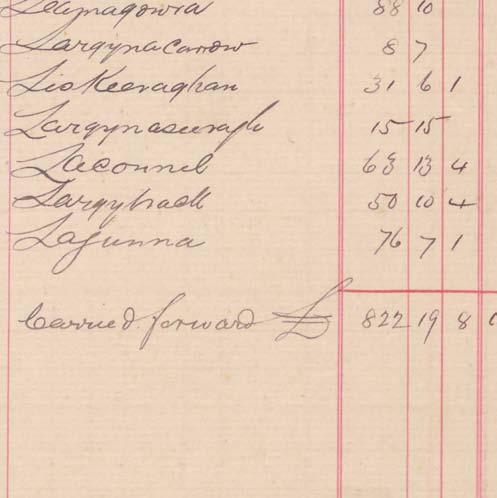 Leaynagowra 88 10
Largynacarrow 8 7
Lioskeeraghan 31 6 1
Largynaseeragh 15 15
Laconnel 63 13 4
Largybrack 50 10 4
Lagunna 76 7 1
Carried forward £ 822 19 8